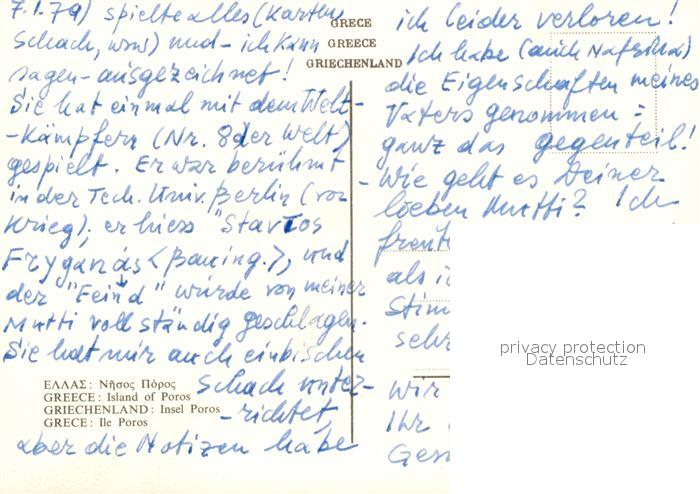 7.1.79) spielte alles (Karten,
Schach, usw) und - ich kann
sagen - ausgezeichnet!
Sie hat einmal mit dem Welt-
-Kämpfern (Nr. 8 der Welt)
gespielt. Er war berühmt
in der Tech. Univ. Berlin (vor
Krieg), er hiess "Stavros
Fryganás < Bauing.>, und
der "Feind" wurde von meiner
Mutti vollständig geschlagen.
Sie hat mir auch einbischen
Schach unter-
-richtet,
aber die Notizen habe
GRECE
GREECE
GRIECHENLAND
ΕΛΛΑΣ: Νῆσος Πόρος
GREECE: Island of Poros
GRIECHENLAND: Insel Poros
GRECE: Ile Poros
ich leider verloren!
Ich habe (auch
die Eigenschaften meines
Vaters genommen =
ganz das gegenteil!
- Wie geht es Deiner
lieben Mutti? Ich
als
sehr
wir
Ihr
privacy protection
Datenschutz